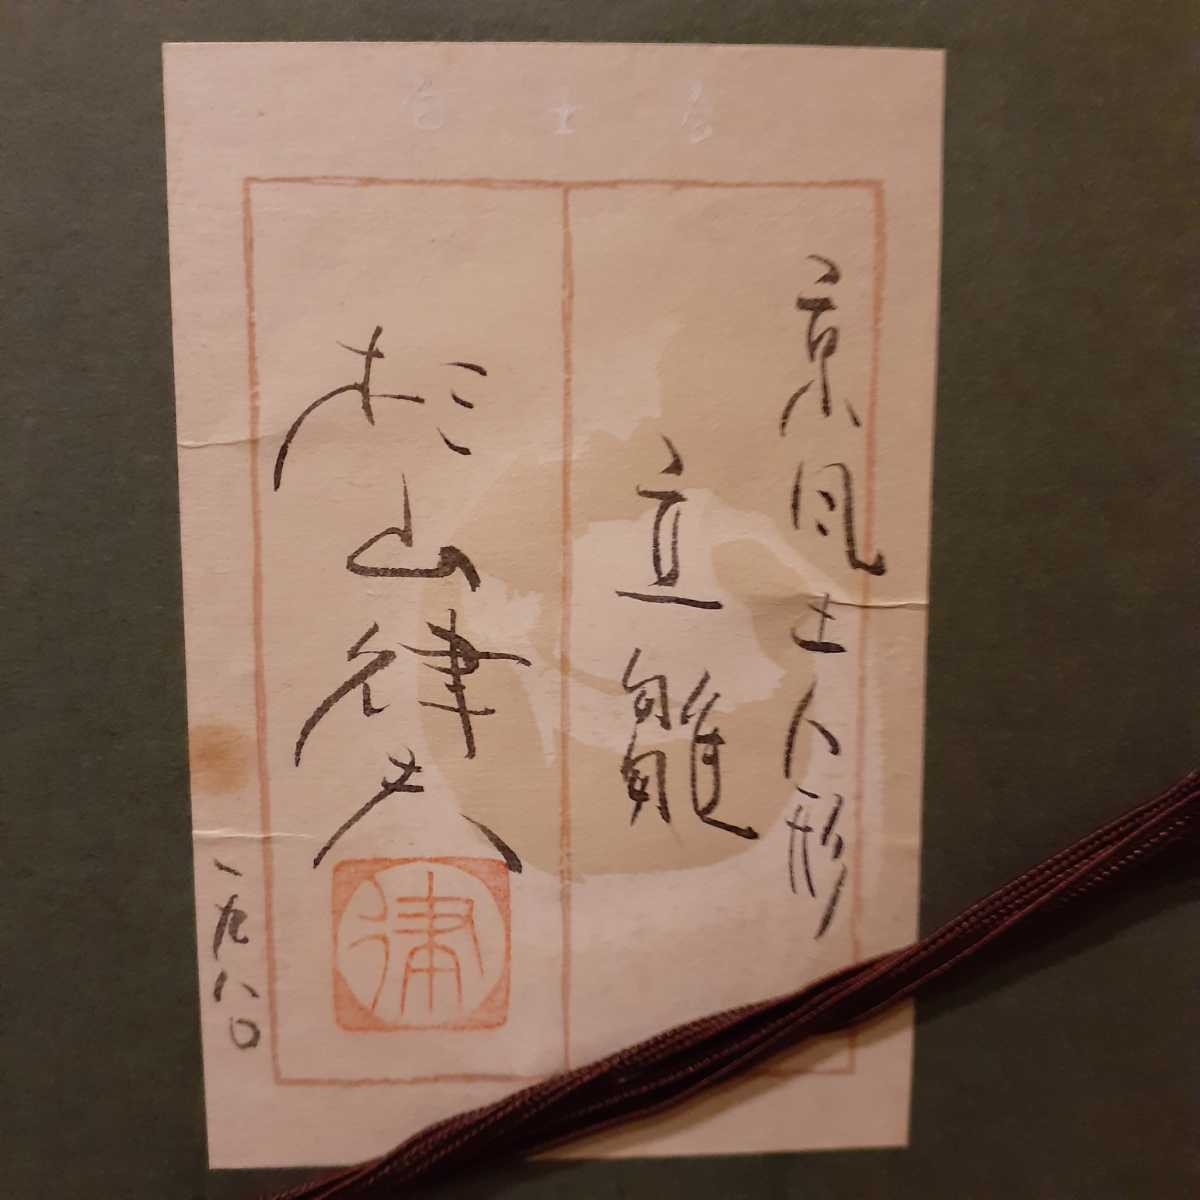 京風土人形
立雛
杉山律夫
律
一九八〇